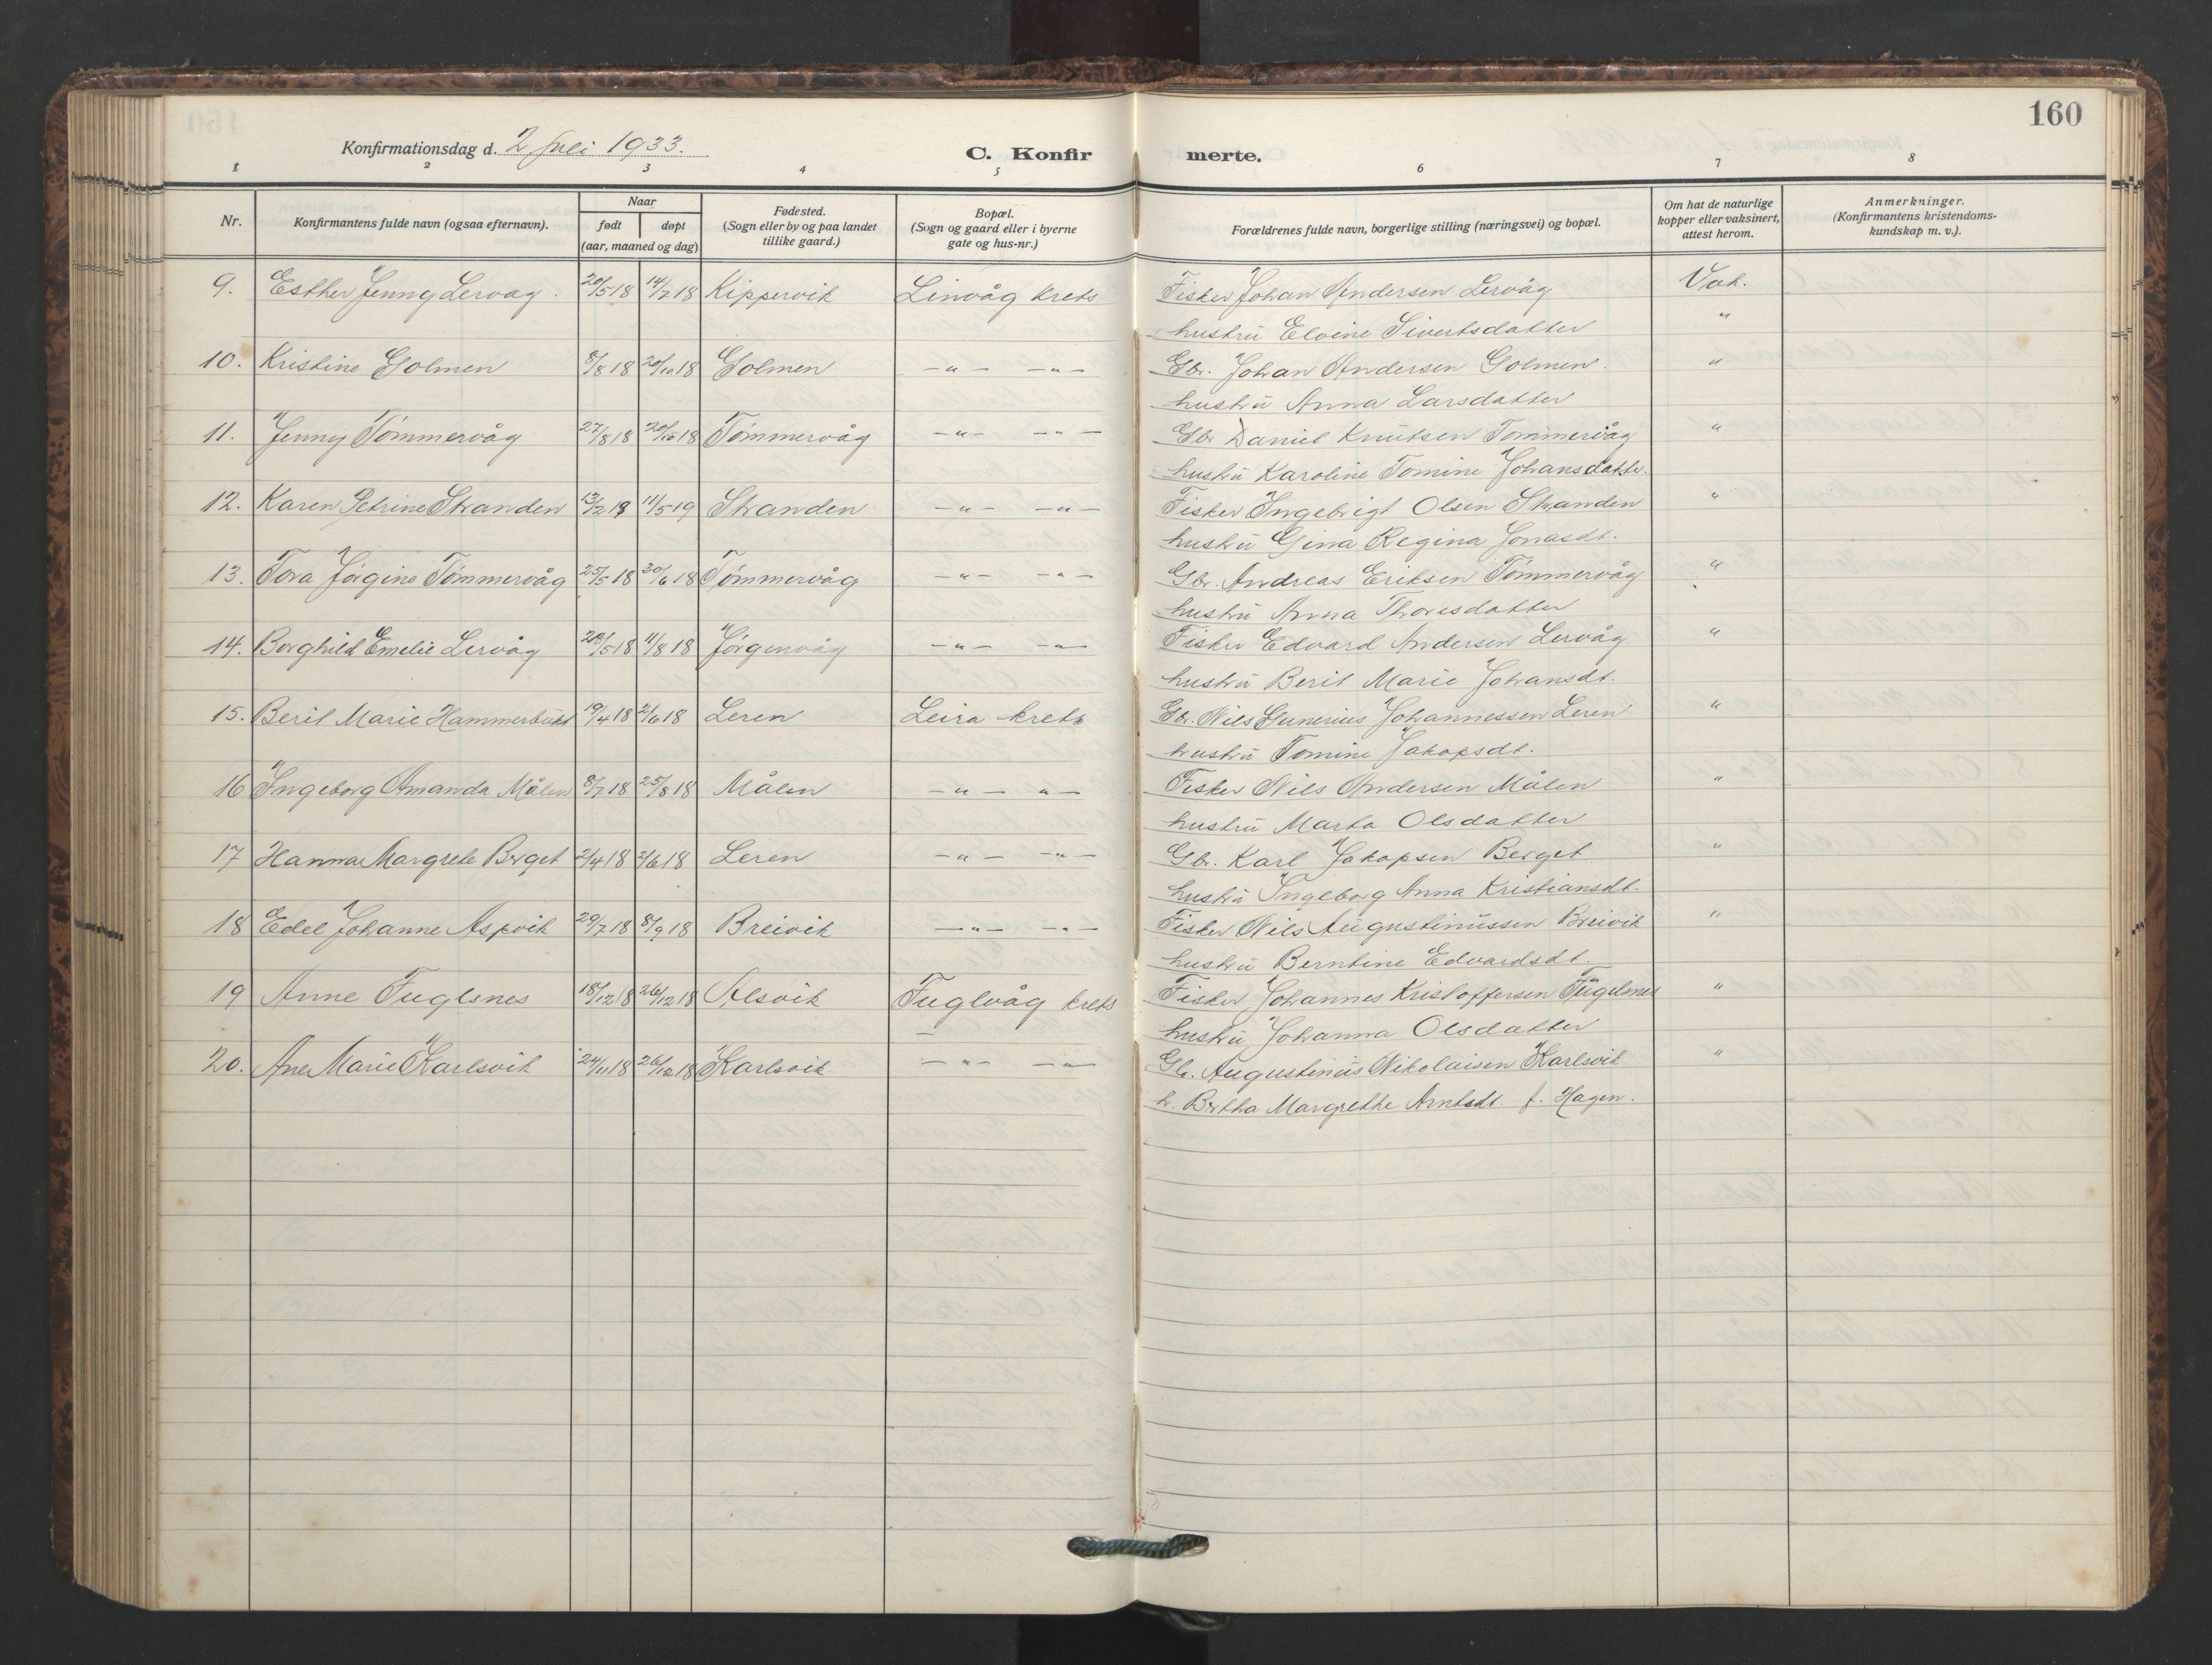 160
Konfirmationsdag d. 2 Juli 1933.
C. Konfirmerte.
1 2 3 4 5 6 7 8
Nr. Konfirmantens fulde navn (ogsaa efternavn). Naar født døpt (aar, maaned og dag) Fødested. (Sogn eller by og paa landet tillike gaard.) Bopæl. (Sogn og gaard eller i byerne gate og hus-nr.) Forældrenes fulde navn, borgerlige stilling (næringsvei) og bopæl. Om hat de naturlige kopper eller vaksinert, attest herom. Anmerkninger. (Konfirmantens kristendoms-kundskap m. v.).
9. Esther Jenny Lervag. 20/5 18 14/7 18 Kippervik Linvåg krets Fisker Johan Andersen Lervåg Vak.
hustru Elvine Sivertsdatter "
10. Kristine Golmen 8/8 18 20/10 18 Golmen —"— —"— Gbr. Johan Andersen Golmen. "
hustru Anna Larsdatter
11. Jenny Tømmervåg 27/8 18 20/10 18 Tømmervåg —"— —"— Gbr Daniel Knutsen Tommervåg "
hustru Karoline Tomine Johansdatter.
12. Karen Petrine Stranden 13/2 18 11/5 19 Stranden —"— —"— Fisker Ingebrigt Olsen Stranden "
hustru Gina Regina Jonasdt.
13. Tora Jørgine Tømmervåg 25/5 18 30/6 18 Tømmervåg —"— —"— Gbr. Andreas Eriksen Tømmervåg "
hustru Anna Thoresdatter
14. Borghild Emelie Lervåg 20/5 18 11/8 18 Jørgenvåg —"— —"— Fisker Edvard Andersen Lervåg "
hustru Berit Marie Johansdt.
15. Berit Marie Hammerbukt 19/4 18 2/6 18 Leren Leira krets Gbr. Nils Gunerius Johannessen Leren "
hustru Tomine Jakopsdt.
16 Ingeborg Amanda Målen 8/7 18 25/8 18 Målen —"— "— Fisker Nils Andersen Målen "
hustru Marta Olsdatter
17 Hanna Margrete Berget 2/4 18 2/6 18 Leren —"— —"— Gbr. Karl Jakopsen Berget "
hustru Ingeborg Anna Kristiansdt.
18 Edel Johanne Aspvik 29/7 18 8/9 18 Breivik —"— —"— Fisker Nils Augustinussen Breivik "
hustru Berntine Edvardsdt.
19 Anne Fuglsnes 18/12 18 26/12 18 Alsvik Fuglvåg krets Fisker Johannes Kristoffersen Fugelsnes "
hustru Johanna Olsdatter
20. Ane Marie Karlsvik 24/11 18 26/12 18 Karlsvik —"— —"— Gb. Augustinus Nikolaisen Karlsvik "
h. Bertha Margrethe Arntsdt. f. Hagen.